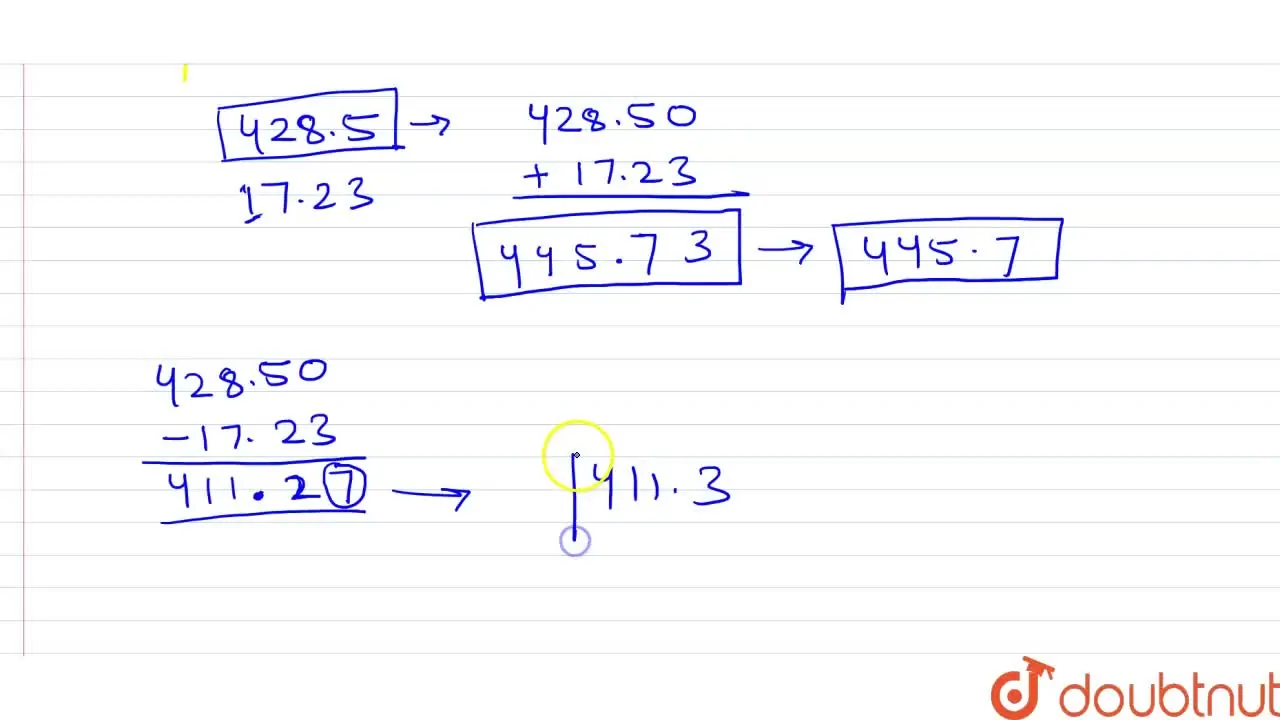 428.5 → 428.50
17.23 + 17.23
445.73 → 445.7
428.50
- 17.23
411.27 → 411.3
doubtnut